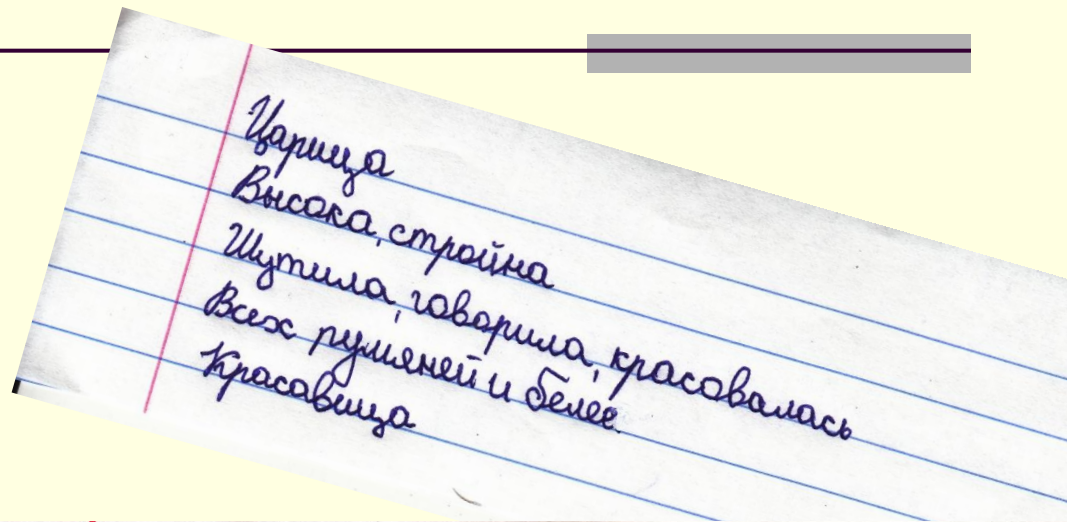 Царица
Высока, стройна
Шутила, говорила, красовалась
Всех румяней и белее.
Красавица